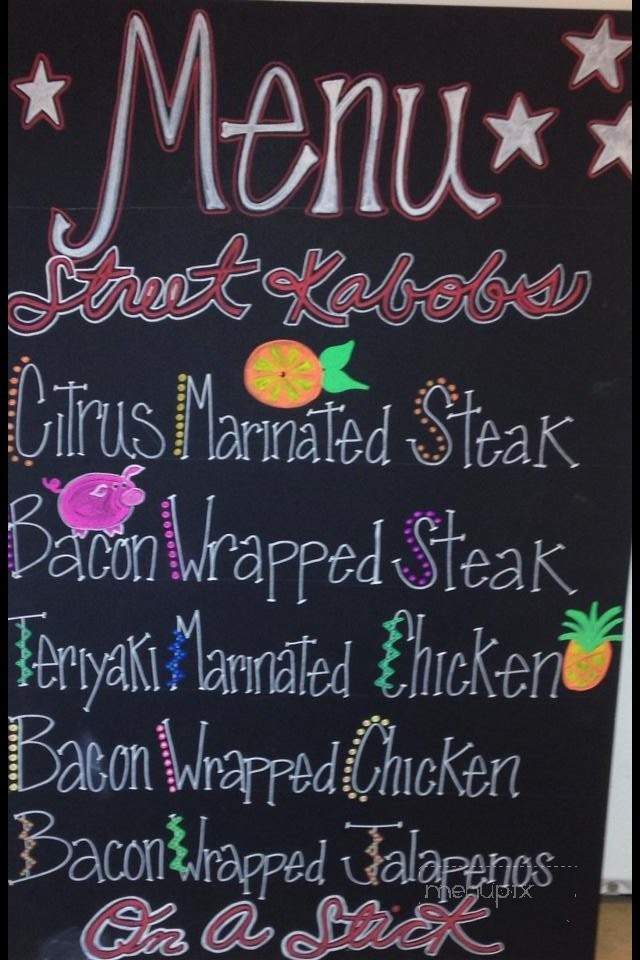 Menu
Street Kabobs
Citrus Marinated Steak
Bacon Wrapped Steak
Teriyaki Marinated Chicken
Bacon Wrapped Chicken
Bacon Wrapped Jalapenos
menupix
On A Stick